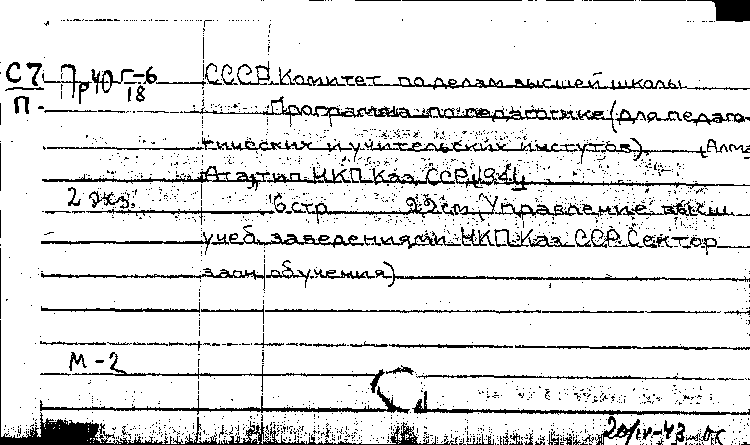 С7 Пр40 Г-6 СССР. Комитет по делам высшей школы
П. 18
Программа по педагогике (для педаго-
гических и учительских инстутов). (Алма
Ата, тип НКП Каз ССР, 1941)
2 экз. 16 стр 22 см (Управление высш
учеб. заведениями НКП Каз ССР. Сектор
заоч обучения)
М-2
20/IV-43